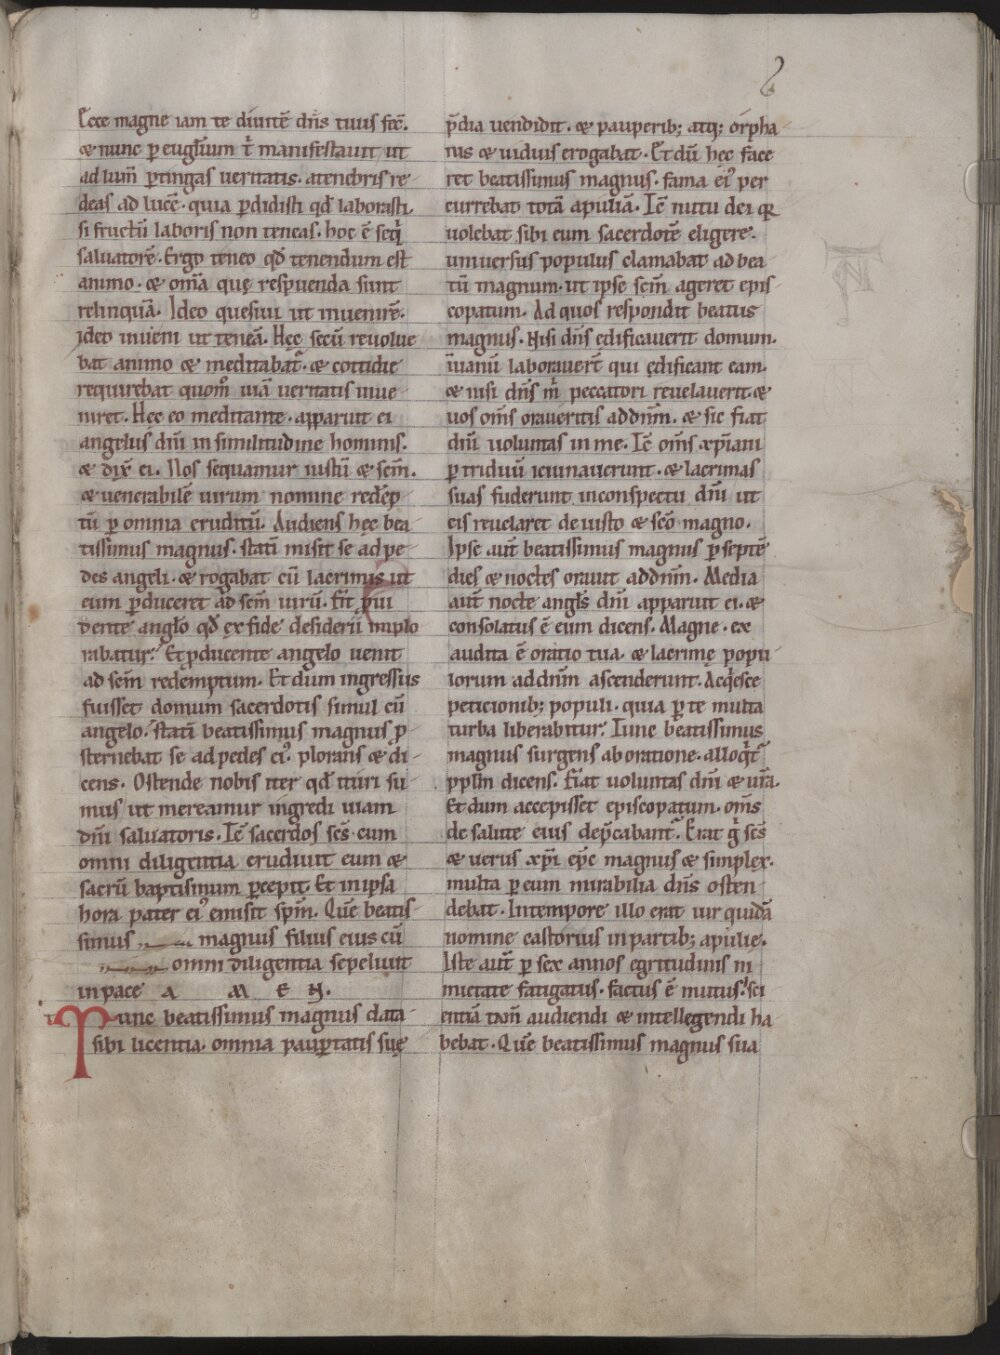 6
Ecce magne iam te diuitē dn̄s tuus fec̄.
& nunc p̱ eugl̄ium t̄ manifestauit ut
ad lum̄ p̱tingas ueritatis. atenebris re-
deas ad lucē. quia p̱didisti qd̄ laborasti.
si fructū laboris non teneas. hoc ē seq̄
saluatorē. Ergo teneo qd̄ tenendum est
animo. & om̄a quę respuenda sunt
relinquā. Ideo quesiui ut inuenirē.
ideo inueni ut teneā. Hęc secū reuolue
bat animo & meditabat᷑. & cottidie
requirebat quom̊ uiā ueritatis inue-
niret. Hęc eo meditante. apparuit ei
angelus dn̄i in similitudine hominis.
& dix̄ ei. Nos sequamur iustū & sc̄m.
& uenerabilē uirum nomine redēp
tū p̱ omnia eruditū. Audiens hęc bea-
tissimus magnus. statī misit se ad pe-
des angeli. & rogabat eū lacrimis ut
eum p̱duceret ad sc̄m uirū. Fit̄ p̄ui
dente angl̄o qd̄ ex fide desiderii implo
rabatur. Et p̱ducente angelo uenit
ad sc̄m redemptum. Et dum ingressus
fuisset domum sacerdotis simul cū
angelo. statī beatissimus magnus p̱-
sternebat se ad pedes ei᾽. plorans & di-
cens. Ostende nobis iter qd̄ ituri su-
mus ut mereamur ingredi uiam
dn̄i saluatoris. Tc̄ sacerdos sc̄s. cum
omni diligentia erudiuit eum &
sacrū baptismum p̱cepit. Et in ipsa
hora pater ei᾽ emisit sp̄m. Quē beatis-
simus magnus filius eius cū
omni diligentia sepeliuit
in pace A M E N.
t Tunc beatissimus magnus data
sibi licentia. omnia paup̱tatis suę
p̄dia uendidit. & pauperib; atq; orpha-
nis & uiduis erogabat. Et dū hęc face
ret beatissimus magnus. fama ei᾽ per
currebat totā apuliā. Tc̄ nutu dei q̄
uolebat sibi eum sacerdotē eligere.
uniuersus populus clamabat ad bea-
tū magnum. ut ipse sc̄m ageret epis-
copatum. Ad quos respondit beatus
magnus. Nisi dn̄s ędificauerit domum.
īuanū laborauer̄t qui ędificant eam.
& nisi dn̄s m̄ peccatori reuelauerit. &
uos om̄s oraueritis ad dn̄m. & sic fiat
dn̄i uoluntas in me. Tc̄ om̄s xp̄iani
p̱ triduū ieiunauerunt. & lacrimas
suas fuderunt in conspectu dn̄i ut
eis reuelaret de iusto & sc̄o magno.
Ipse aut̄ beatissimus magnus p̱ septē
dies & noctes orauit ad dn̄m. Media
aut̄ nocte angl̄s dn̄i apparuit ei. &
consolatus ē eum dicens. Magne. ex
audita ē oratio tua. & lacrimę popu
lorum ad dn̄m ascenderunt. Acq̄esce
peticionib; populi. quia p̱ te multa
turba liberabitur. Tunc beatissimus
magnus surgens ab oratione. alloq̄t᷑
ppl̄m dicens. Fiat uoluntas dn̄i & ur̄a.
Et dum accepisset episcopatum. om̄s
de salute eius dep̄cabant᷑. Erat g̊ sc̄s
& uerus xp̄i ep̄c magnus & simplex.
multa p̱ eum mirabilia dn̄s osten-
debat. In tempore illo erat uir quidā
nomine castorius in partib; apulie.
Iste aut̄ p̱ sex annos egritudinis in
mietate fatigatus. factus ē mutus. sci
entiā tam̄ audiendi & intellegendi ha
bebat. Quē beatissimus magnus sua